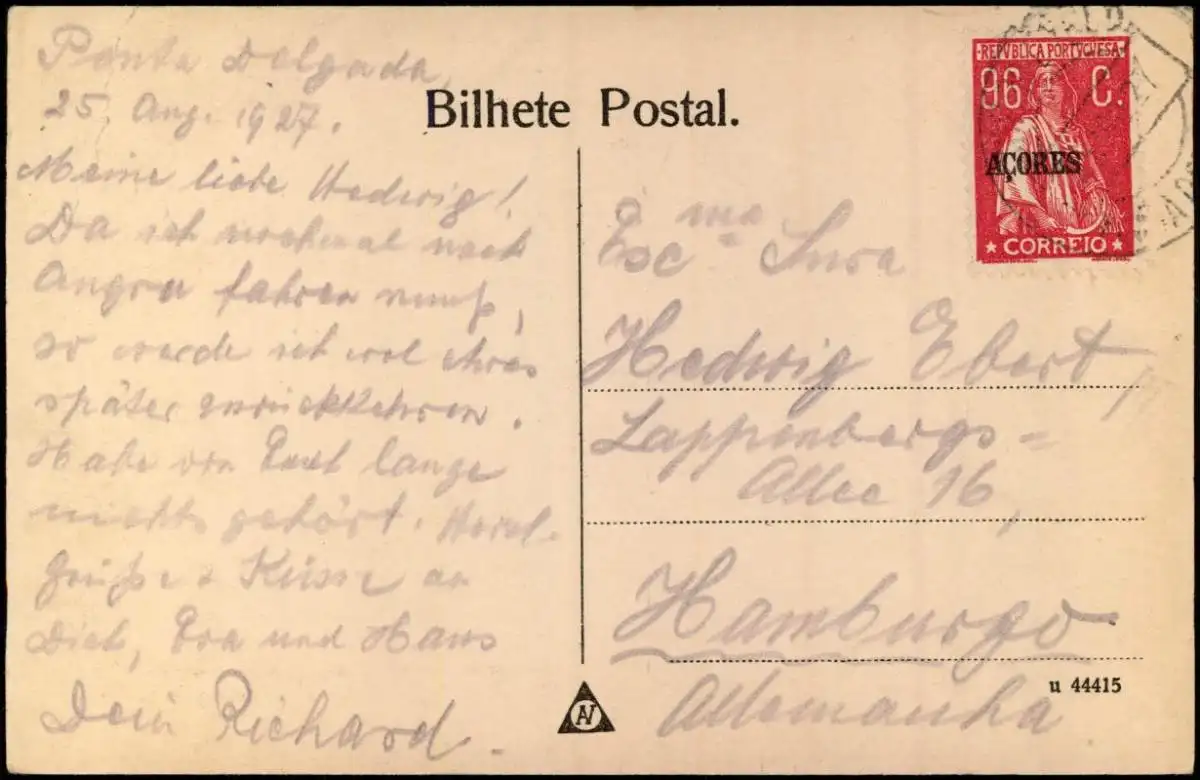 Ponta Delgada,
25. Aug. 1927.
Meine liebe Hedwig!
Da ich nochmal nach
Angra fahren muß,
so werde ich wol etwas
später zurückkehren.
Habe von Euch lange
nichts gehört. Herzl.
Grüße & Küsse an
Dich, Eva und Hans
Dein Richard.
Bilhete Postal.
REPVBLICA PORTVGVESA
96 C.
AÇORES
CORREIO
27
Exc ma Snra
Hedwig Ebert
Lappenbergs-
Allee 16,
Hamburgo
Allemanha
u 44415